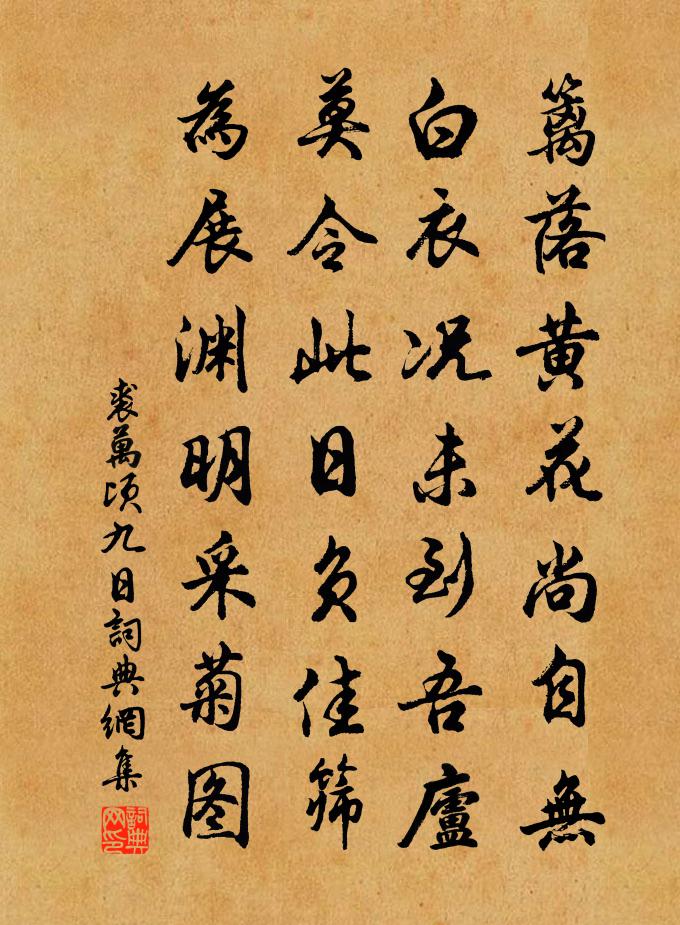 籬落黄花尚自無
白衣况未到吾廬
莫令此日负佳節
為展渊明采菊图
裘萬頃九日詞典網集
詞典网印